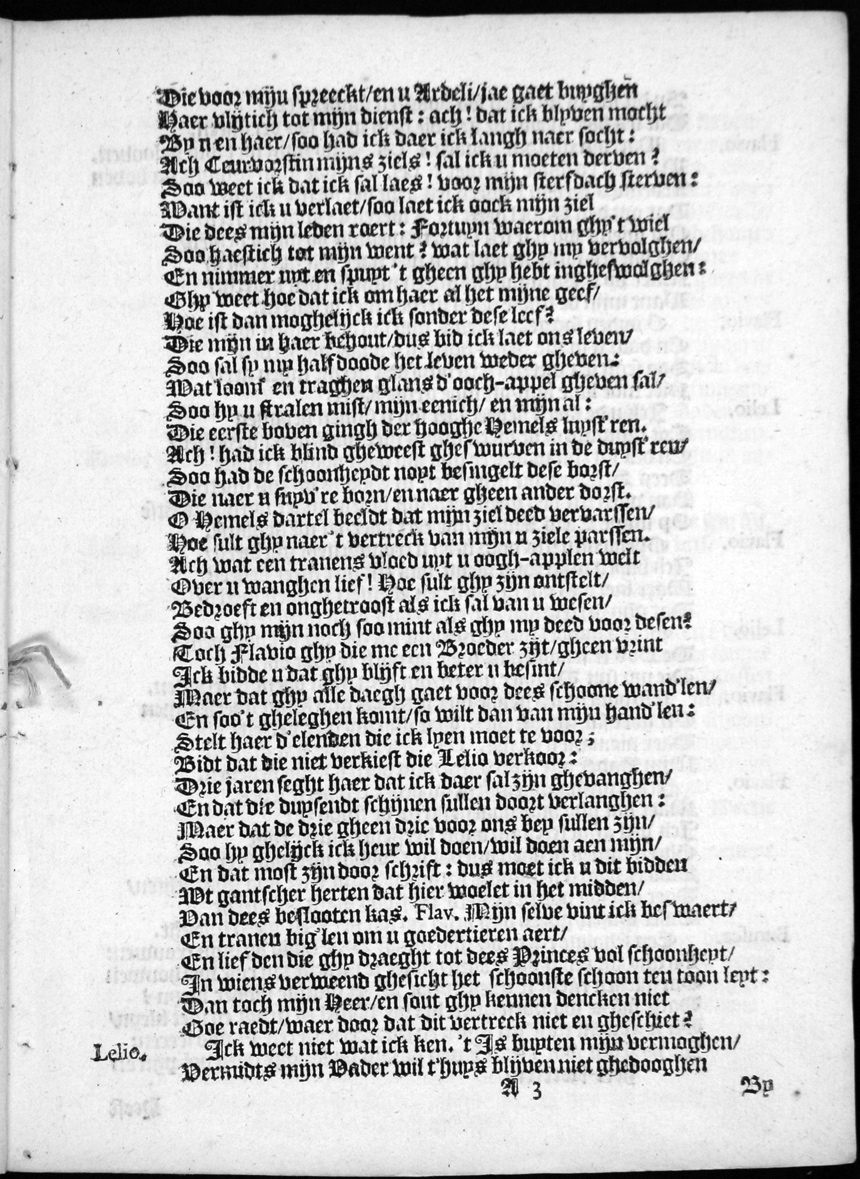 Die voor mijn spreeckt/en u Ardeli/jae gaet buyghen
Haer vlijtich tot mijn dienst: ach! dat ick blyven mocht
By n en haer/soo had ick daer ick langh naer socht:
Ach Ceurvorstin mijns ziels! sal ick u moeten derven?
Soo weet ick dat ick sal laes! voor mijn sterfdach sterven:
Want ist ick u verlaet/soo laet ick oock mijn ziel
Die dees mijn leden roert: Fortuyn waerom ghy't wiel
Soo haestich tot mijn went? wat laet ghy my vervolghen/
En nimmer uyt en spuyt 't gheen ghy hebt ingheswolghen:
Ghy weet hoe dat ick om haer al het mijne geef/
Hoe ist dan moghelijck ick sonder dese leef?
Die mijn in haer behout/dus bid ick laet ons leven/
Soo sal sy my half doode het leven weder gheven:
Wat loont en traghen glans d'ooch-appel gheven sal/
Soo hy u stralen mist/mijn eenich/ en mijn al:
Die eerste boven gingh der hooghe Hemels luyst'ren.
Ach! had ick blind gheweest gheswurven in de duyst'ren/
Soo had de schoonheydt noyt besingelt dese borst/
Die naer u suyv're born/en naer gheen ander dorst.
O Hemels dartel beeldt dat mijn ziel deed vervarssen/
Hoe sult ghy naer 't vertreck van mijn u ziele parssen.
Ach wat een tranens vloed uyt u oogh-applen welt
Over u wanghen lief! Hoe sult ghy zijn ontstelt/
Bedroeft en onghetroost als ick sal van u wesen/
Soo ghy mijn noch soo mint als ghy my deed voor desen?
Toch Flavio ghy die me een Broeder zijt/gheen vrint
Ick bidde u dat ghy blijft en beter u besint/
Maer dat ghy alle daegh gaet voor dees schoone wand'len/
En soo't gheleghen komt/so wilt dan van mijn hand'len:
Stelt haer d'elenden die ick lyen moet te voor;
Bidt dat die niet verkiest die Lelio verkoor:
Drie jaren seght haer dat ick daer sal zijn ghevanghen/
En dat die duysendt schijnen sullen doort verlanghen:
Maer dat de drie gheen drie voor ons bey sullen zijn/
Soo hy ghelijck ick heur wil doen/wil doen aen mijn/
En dat most zijn door schrift: dus moet ick u dit bidden
Wt gantscher herten dat hier woelet in het midden/
Van dees beslooten kas. Flav. Mijn selve vint ick beswaert/
En tranen big'len om u goedertieren aert/
En liefden die ghy draeght tot dees Princes vol schoonheyt/
In wiens verweend ghesicht het schoonste schoon ten toon leyt:
Dan toch mijn Heer/en sout ghy kennen dencken niet
Goe raedt/waer door dat dit vertreck niet en gheschiet?
Lelio. Ick weet niet wat ick ken. 't Is buyten mijn vermoghen/
Vermidts mijn Vader wil t'huys blijven niet ghedooghen
A 3 By